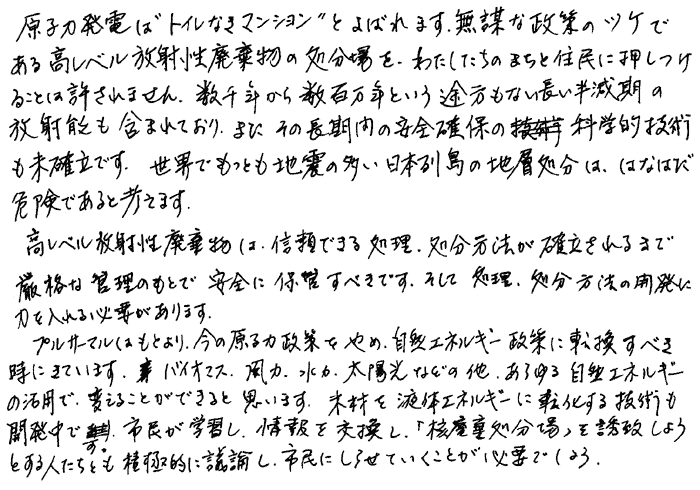 原子力発電は"トイレなきマンション"とよばれます。無謀な政策のツケで
ある高レベル放射性廃棄物の処分場を、わたしたちのまちと住民に押しつけ
ることは許されません。数千年から数百万年という途方もない長い半減期の
放射能も含まれており、またその長期間の安全確保の科学的技術
も未確立です。世界でもっとも地震の多い日本列島の地層処分は、はなはだ
危険であると考えます。
高レベル放射性廃棄物は、信頼できる処理、処分方法が確立されるまで
厳格な管理のもとで安全に保管すべきです。そして処理、処分方法の開発に
力を入れる必要があります。
プルサーマルはもとより、今の原子力政策をやめ、自然エネルギー政策に転換すべき
時にきています。バイオマス、風力、水力、太陽光などの他、あらゆる自然エネルギー
の活用で、変えることができると思います。木材を液体エネルギーに転化する技術も
開発中です。市民が学習し、情報を交換し、「核廃棄処分場」を誘致しよう
とする人たちとも積極的に議論し、市民にしらせていくことが必要でしょう。